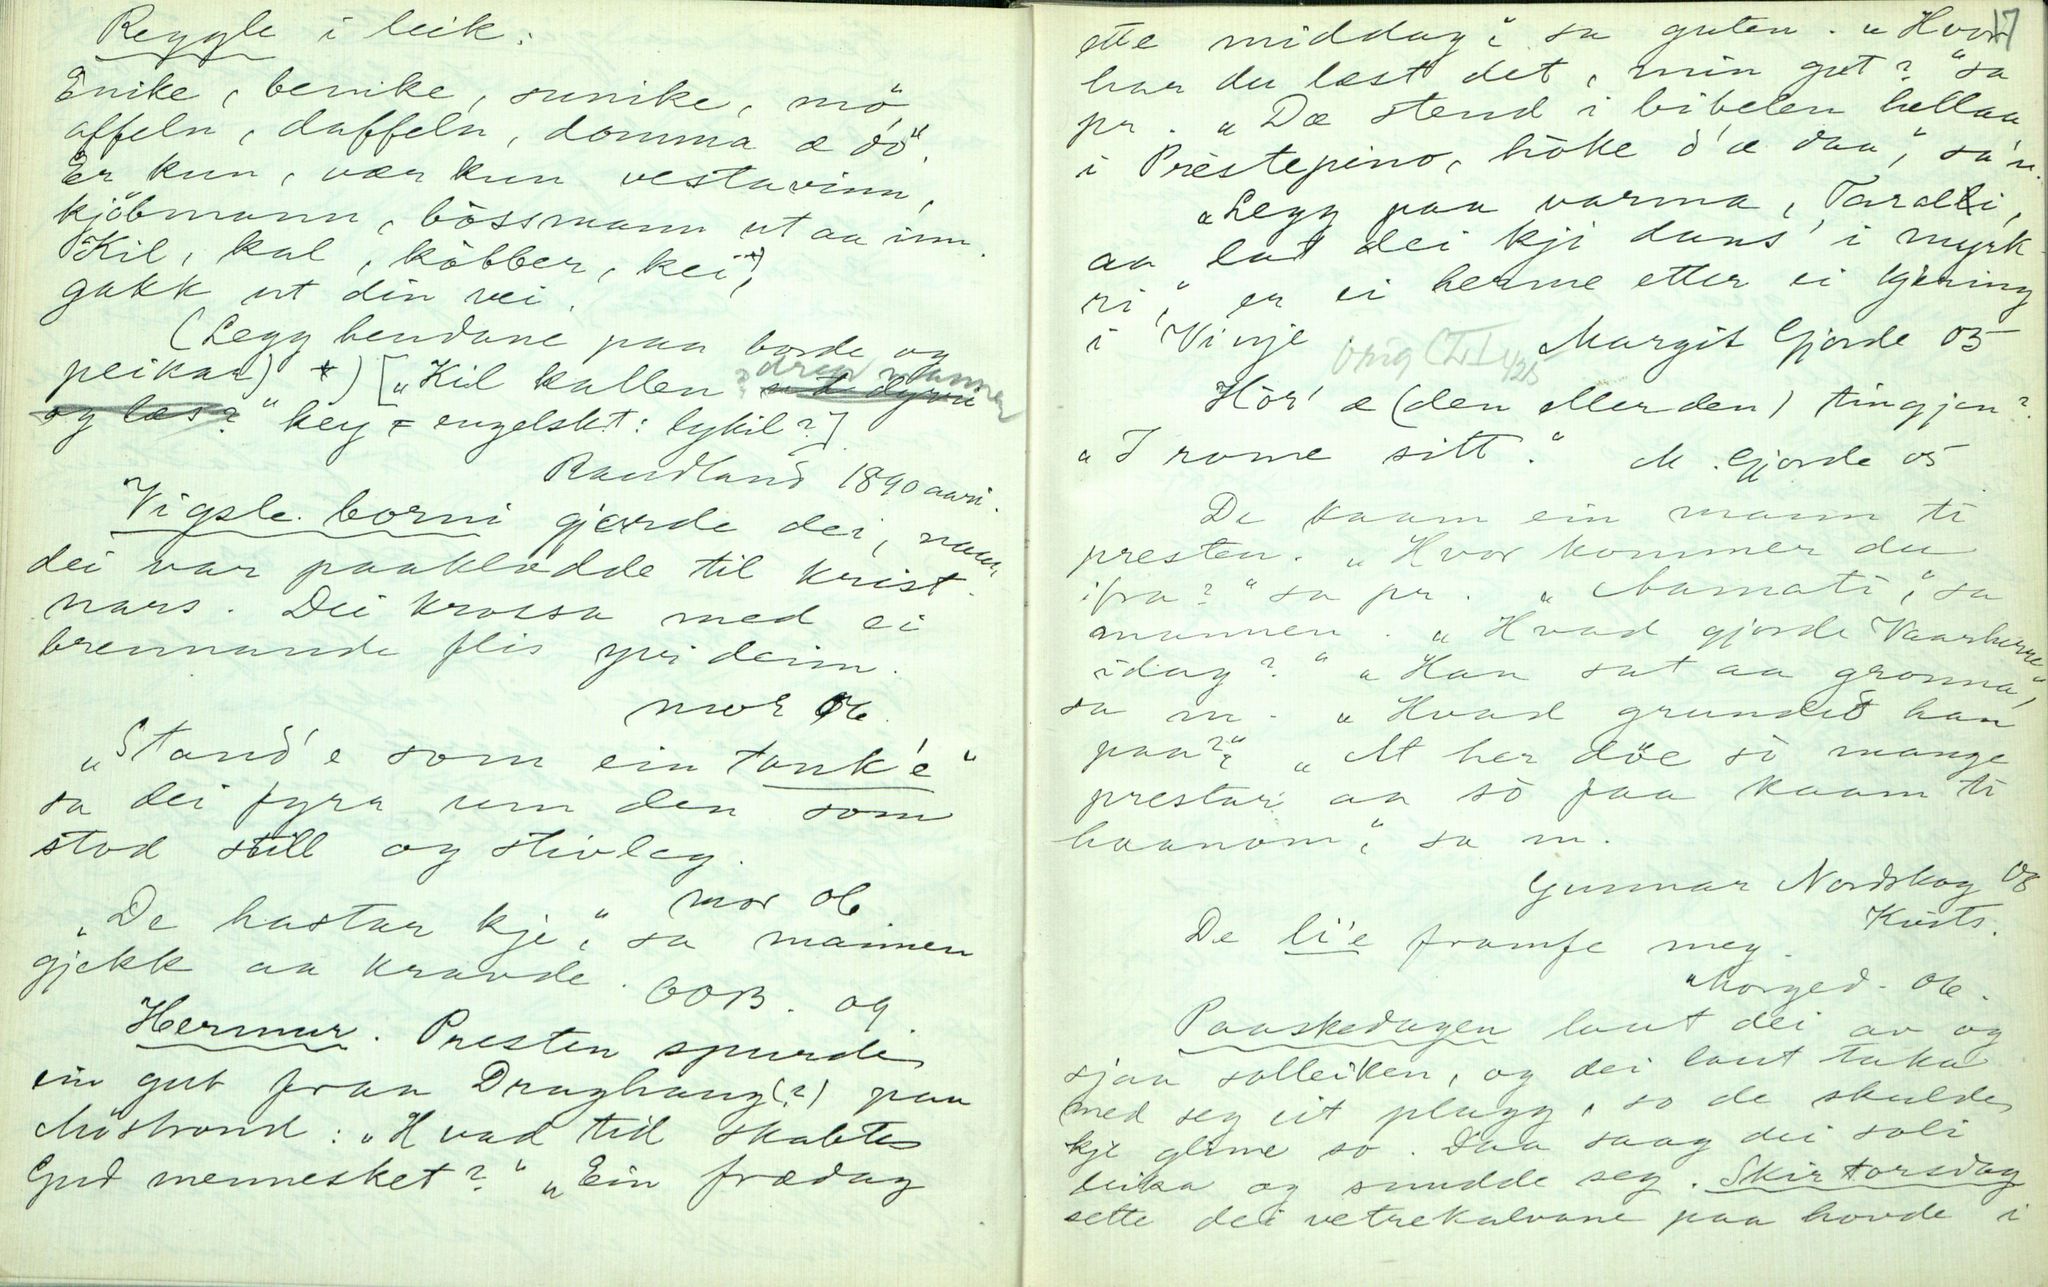 Reggle i leik:
Enike, benike, sunike, mö,
affeln, daffeln, domma æ dö.
Er kun, vær kun vestavinn,
kjöbmann, bössmann ut aa inn.
Kil, kal, köbber, kei *),
gakk ut din vei.
(Legg hendane paa borde og
peikar) *) ["Kil kallen
og læs?" key = engelskt: lykil?]
Raudland 1890 aari.
Vigsle borni gjorde dei, naar
dei var paaklödde til krist-
nars. Dei krossa med ei
brennande flis yvi deim.
mor 06.
"Stand'e som ein tank'e"
sa dei fyrr um den som
stod still og stivleg.
mor 06.
"De hastar kje," sa mannen
gjekk aa kravde. OOB. 09.
Hermur. Presten spurde
ein gut fraa Draghaug(?) paa
Möstrond: "Hvad tid skabte
Gud mennesket?" "Ein frædag
17
ette middag," sa guten. "Hvor
har du læst det, min gut?" sa
pr. "Dæ stend i bibelen hellaa
i Prestepino, höke d'æ daa," sa'n.
"Legg paa varma, Taralli,
aa lat dei kji dans' i myrk-
ri," er ei herme etter ei kjering
i Vinje Margit Gjorde 05
Hör' æ (den eller den) tingjen?
"I rome sitt." M. Gjorde 05
De kaam ein mann ti
presten. "Hvor kommer du
ifra?" sa pr. "Aamati," sa
mannen. "Hvad gjorde Vaarherre
idag?" "Han sat aa gronna",
sa m. "Hvad grundet han
paa?" "At her döe so mange
prestar aa so faa kaam ti
haanom," sa m.
Gunnar Nordskog 08
Kvits.
De li'e framfe meg.
Morged. 06.
Paaskedagen laut dei av og
sjaa solleiken, og dei laut taka
med seg eit plagg, so de skulde
kje glime so. Daa saag dei soli
leika og snudde seg. Skirtorsdag
sette dei vetrekalvane paa hovde i